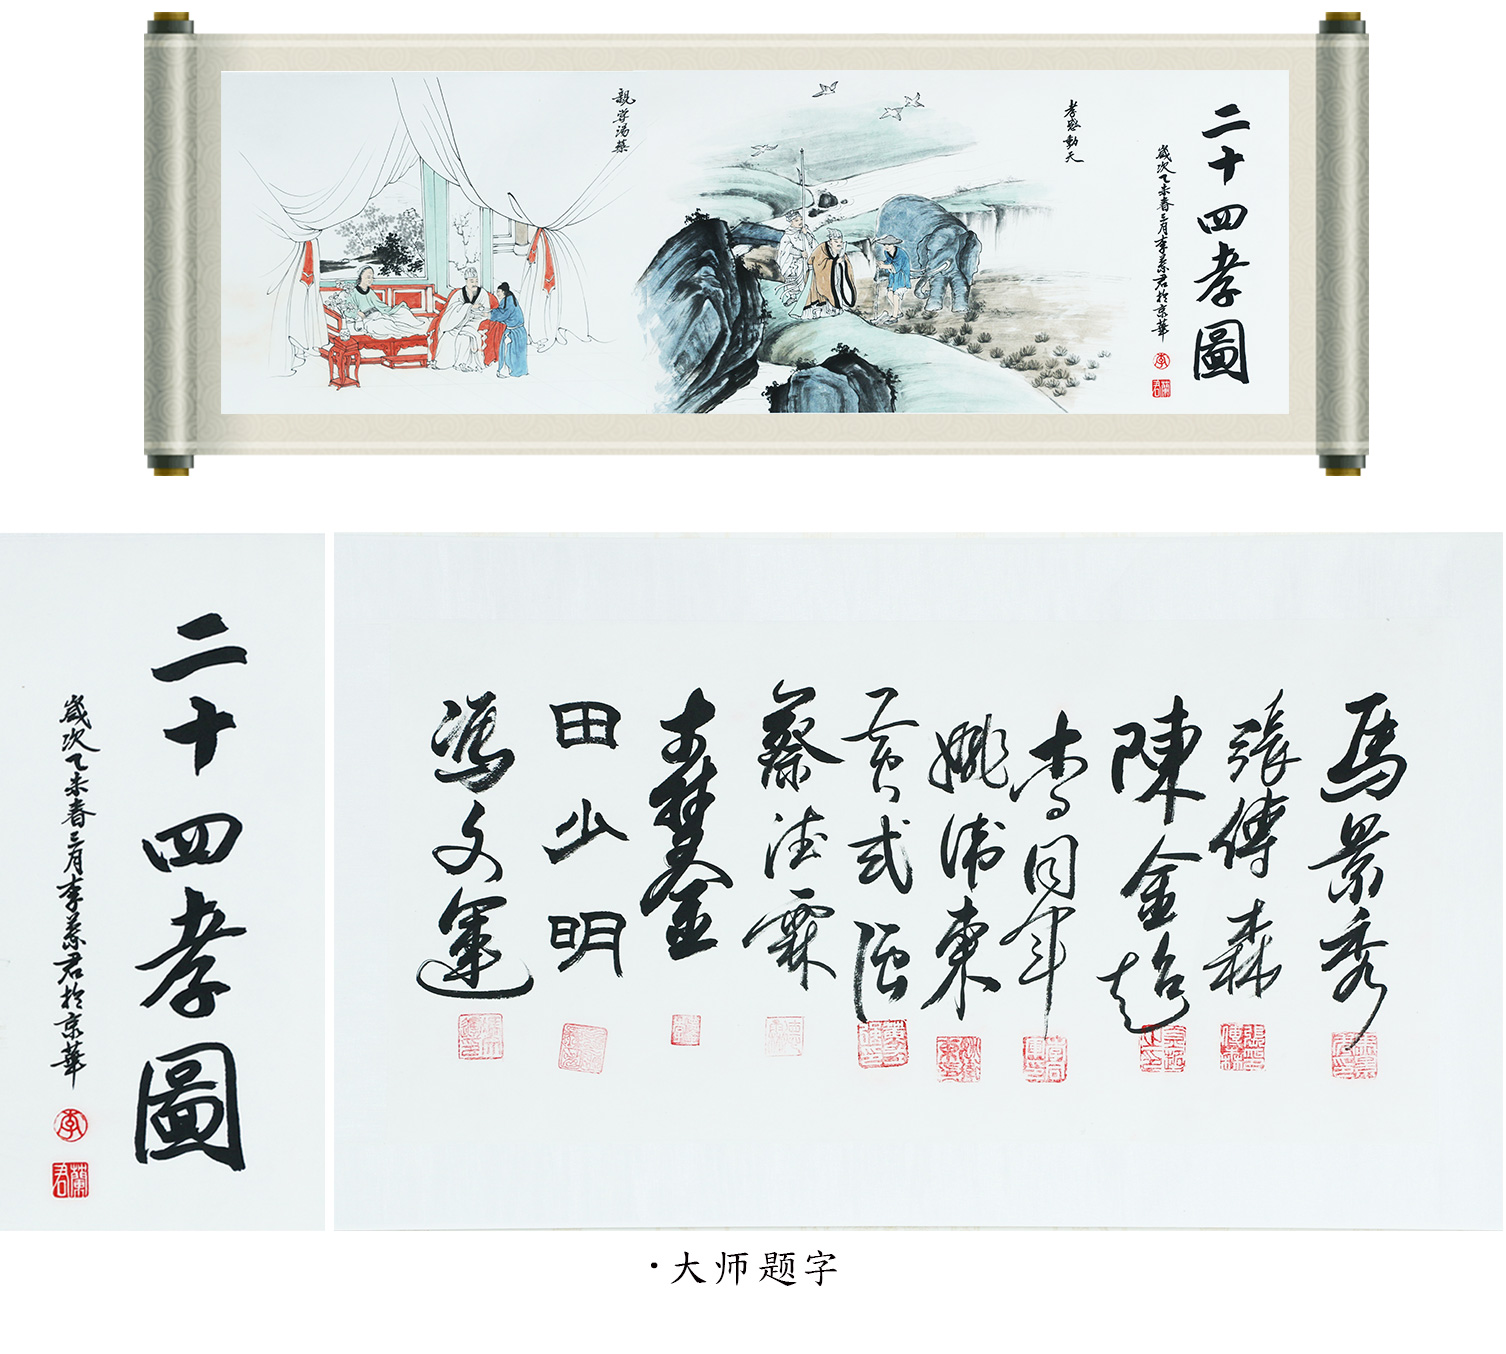 二十四孝圖
歲次乙未春三月李蘭君於京華
李
蘭君
孝感動天
親嘗湯藥
二十四孝圖
歲次乙未春三月李蘭君於京華
李
蘭君
馬景秀
張傳森
陳金超
李同年
姚沛東
黃武強
蔡德霖
王慧金
田少明
馮文運
·大师题字